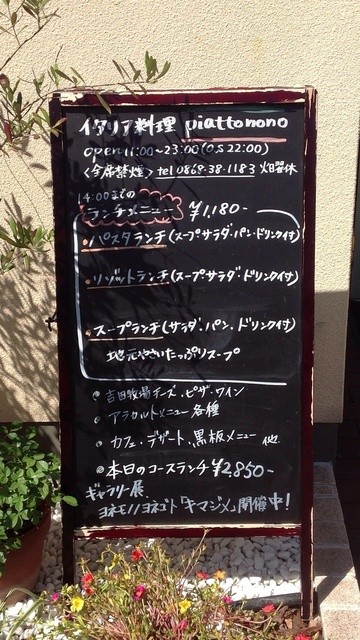 イタリア料理 piattonono
open 11:00~23:00(O.S 22:00)
<全席禁煙> tel 0869-38-1183 火曜休
14:00までの
ランチメニュー ¥1,180-
・パスタランチ(スープ・サラダ・パン・ドリンク付)
・リゾットランチ(スープ・サラダ・ドリンク付)
・スープランチ(サラダ・パン・ドリンク付)
地元やさいたっぷりスープ
吉田牧場チーズ・ピザ・ワイン
アラカルトメニュー各種
カフェ・デザート、黒板メニュー 他
本日のコースランチ ¥2,850-
ギャラリー展
ヨネモノヨネゴト「キマジメ」開催中!